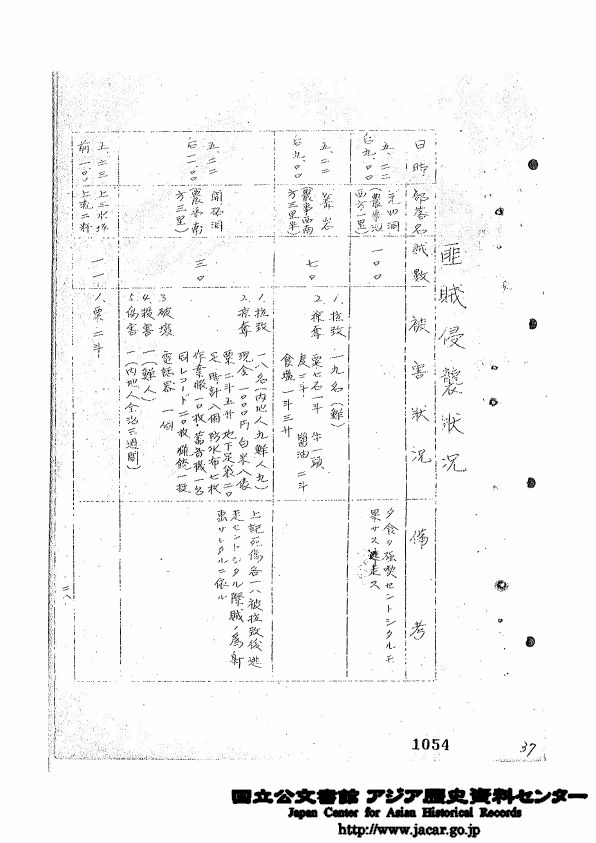 匪賊侵襲状況
日時
部落名
賊数
被害状況
備考
五、二二
后九、〇〇
西方一里)
一〇〇
夕食ヲ強喫セントシタルモ
果サス逃走ス
五、二二
后九、〇〇
農事西南
方三里半)
七〇
1. 拉致 一九名(鮮)
2. 掠奪 粟七石一斗 牛一頭
醤油 二斗
食塩 一斗三升
五、二二
農事南
方三里)
三〇
1. 拉致 一八名(内地人九鮮人九)
2. 掠奪 現金一〇〇〇円 白米八俵
粟二斗五升 地下足袋二〇
足 時計八個 防水布七枚
作業服一〇枚 蓄音機一台
同レコード二〇枚 猟銃一挺
3. 破壊 電話器 一個
4. 殺害 一(鮮人)
5. 傷害 一(内地人全治三週間)
上記死傷各一ハ被拉致後逃
走セントシタル際賊ノ為射
害サレタルニ依ル
五、二三
前一、〇〇
一一
1. 粟二斗
二八
1054
37
国立公文書館 アジア歴史資料センター
Japan Center for Asian Historical Records
http://www.jacar.go.jp